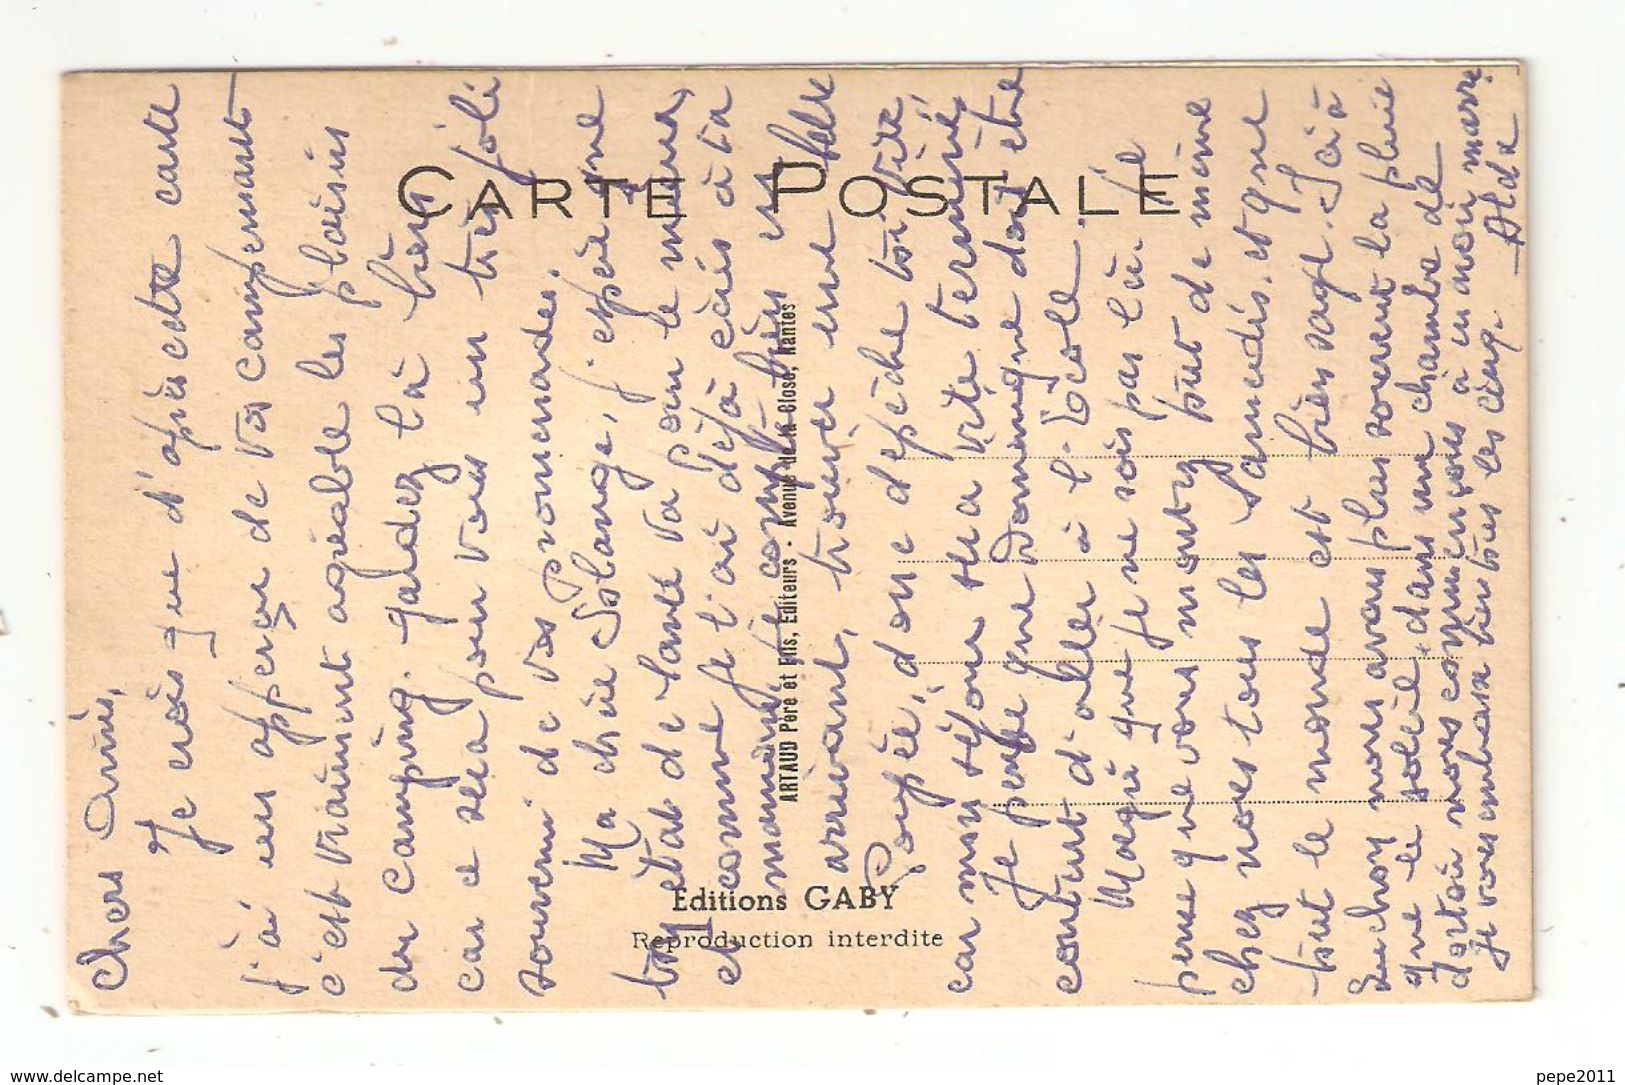 CARTE POSTALE
Chers Amis,
Je crois que d'après cette carte
j'ai un apperçu de vos campement
c'est vraiment agréable les plaisirs
du camping. gardez là bien
car ce sera pour vous un très joli
souvenir de vos promenades.
Ma chère Solange, j'espère que
ton état de santé va pour le mieux,
et comme je l'ai déjà écris à ta
maman, complès en
arrivant, trouver une belle
Poupée, donc dépèche toi vite,
car mon séjour sera vite terminé
Je pense que Domonique doit être
content d'aller à l'école.
Malgré que je ne sois pas là. je
pense que vous montez tout de même
chez nous tous les samedis. et que
tout le monde est bien sage. Ici à
Luchon nous avons plus souvent la pluie
que le soleil. dans une chambre de
nous commençons à en avoir marre
Je vous embrasse bien tous les cinq. Alda
ARTAUD Père et Fils, Editeurs - Avenue de la Close, Nantes
Editions GABY
Reproduction interdite
www.delcampe.net
pepe2011